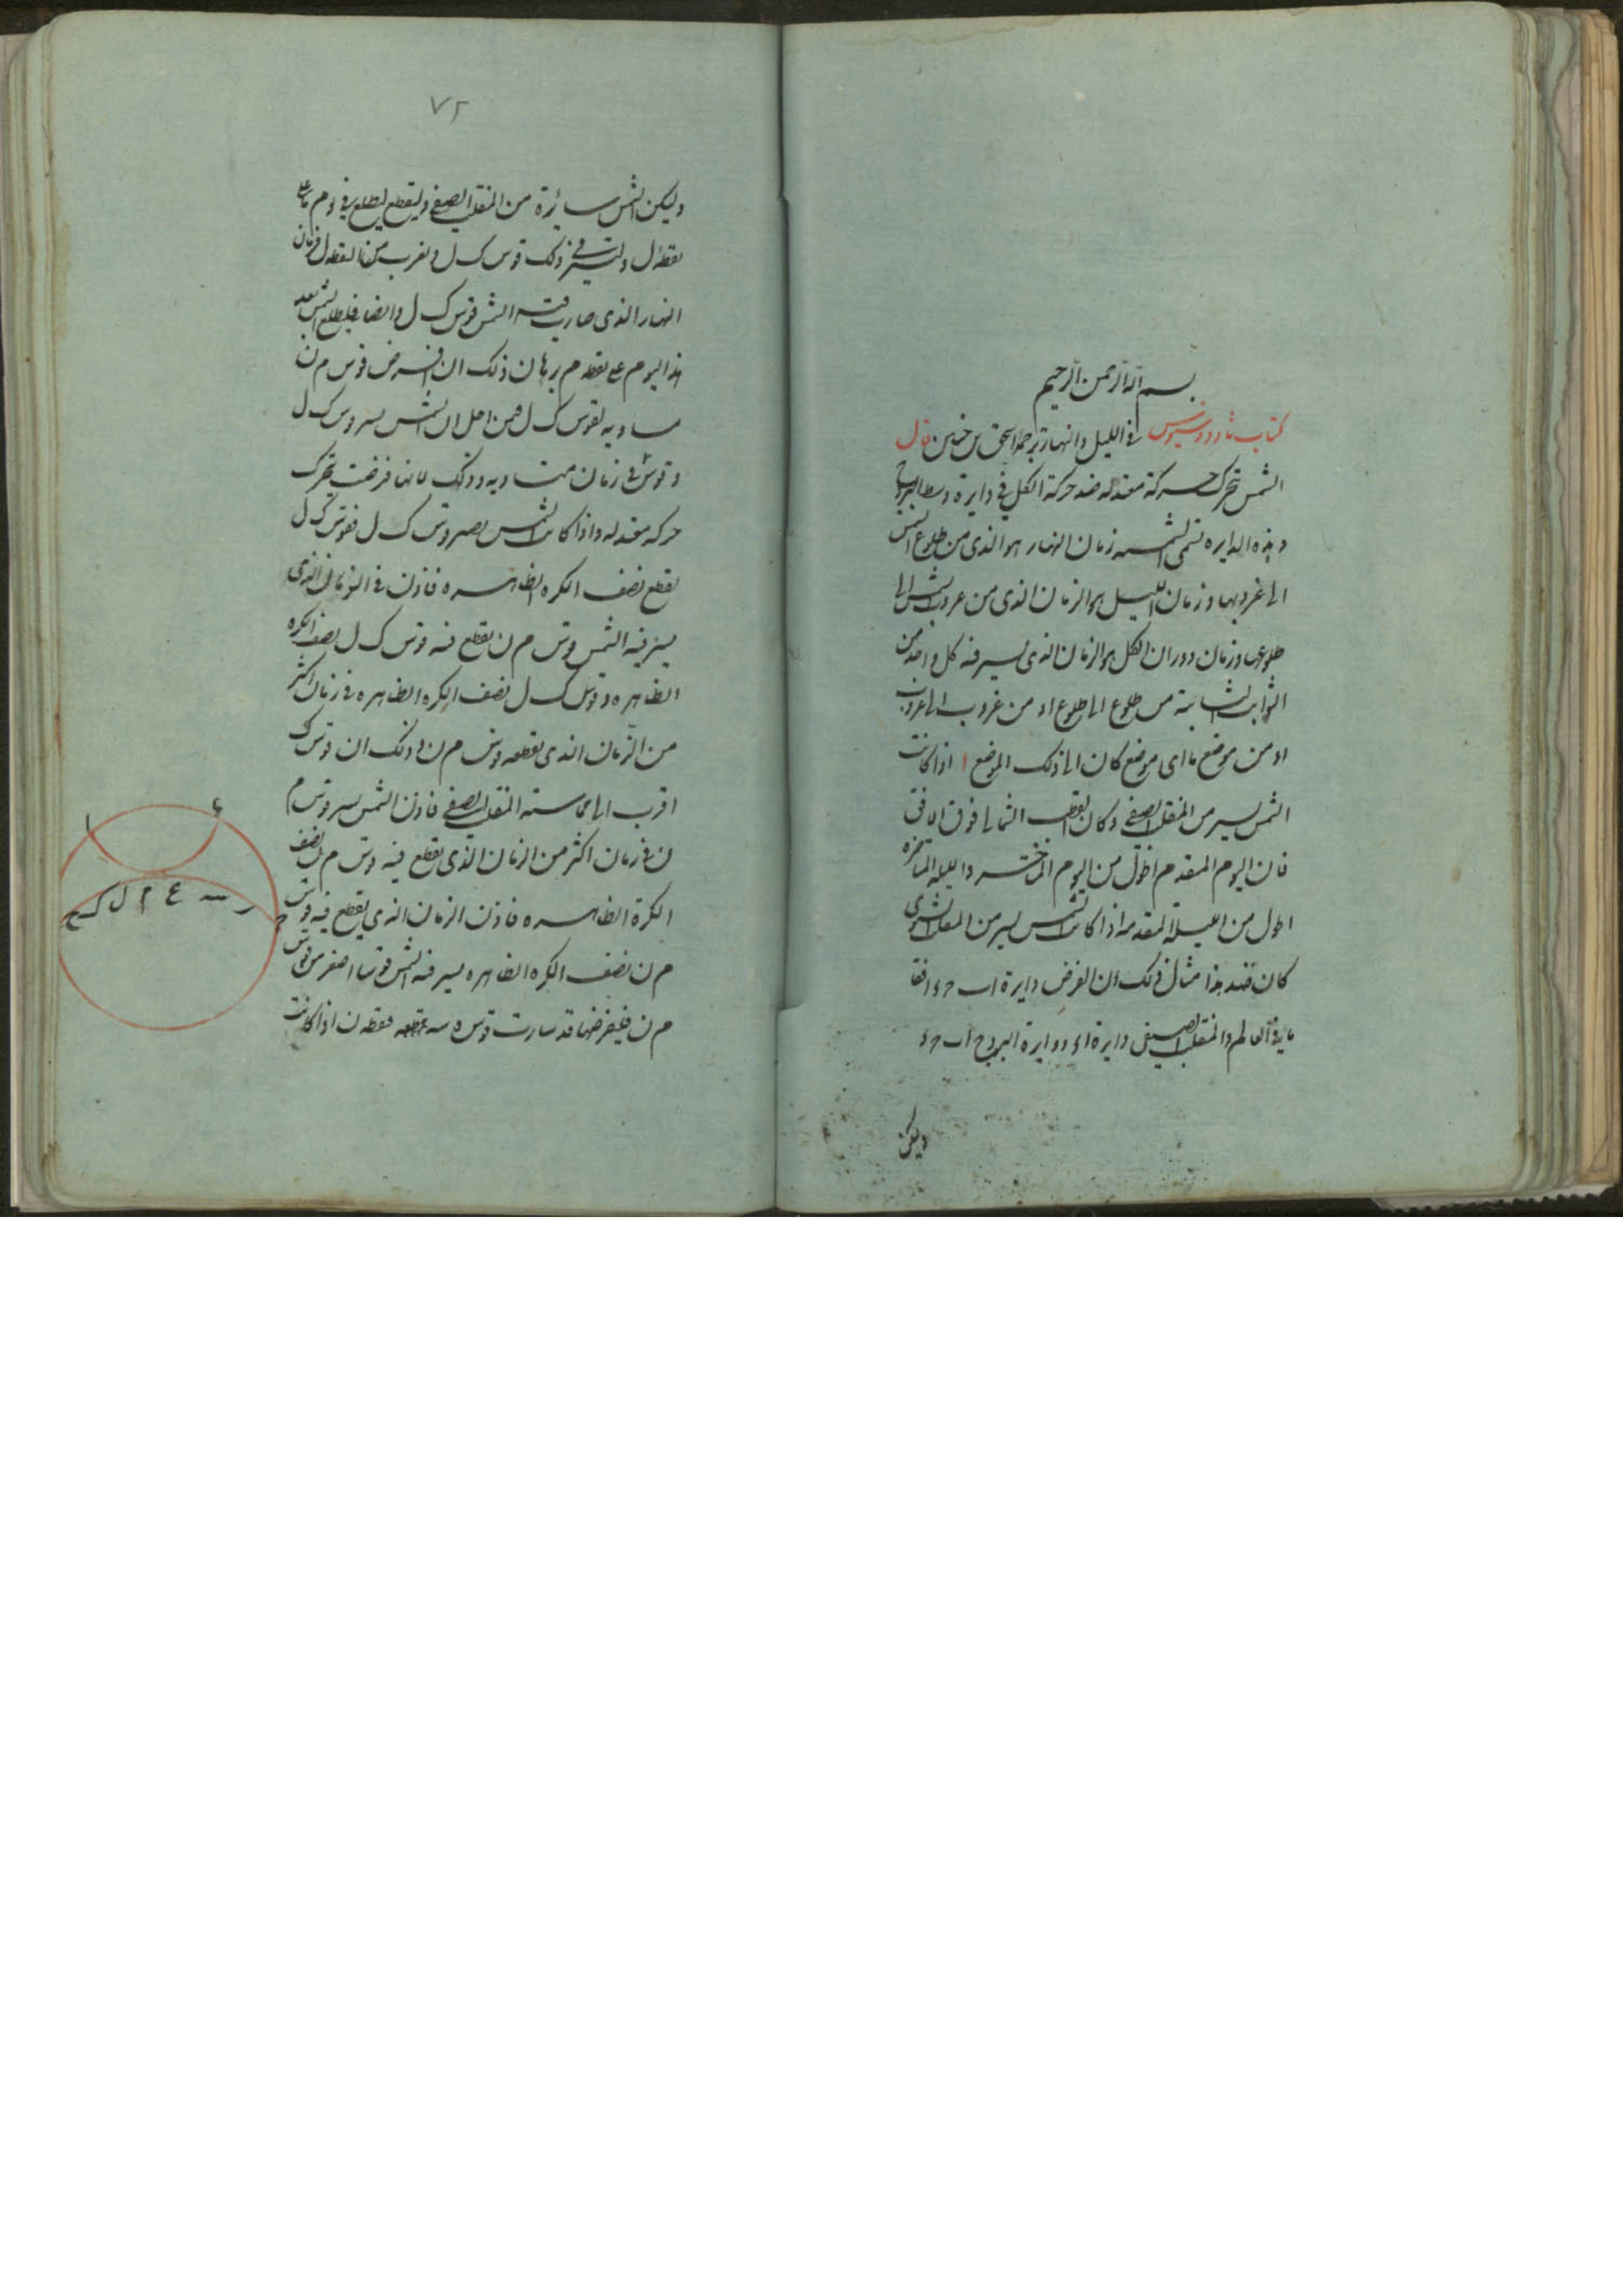 بسم الله الرحمن الرحيم
كتاب ثاودوسيوس في الليل والنهار ترجمة اسحق بن حنين قال
الشمس تتحرك حركة معتدله ضد حركة الكل في دايرة وسط البروج
وهذه الدايره تسمى الشمسيه زمان النهار هو الذي من طلوع الشمس
الى غروبها وزمان الليل هو الزمان الذي من غروب الشمس الى
طلوعها وزمان دوران الكل هو الزمان الذي يسير فيه كل واحد من
الثوابت الثابتة من طلوع الى طلوع او من غروب الى غروب
او من موضع ما اى موضع كان الى ذلك الموضع ا اذا كانت
الشمس يسير من المنقلب الصيفي وكان القطب الشمالى فوق الافق
فان اليوم المقدم اطول من اليوم المتاخر والليله المتاخره
اطول من الليلة المقدمه واذا كانت الشمس يسير من المنقلب الشتوى
كان ضد هذا مثال ذلك ان الفرض دايرة ا ب ح ء افقا
ما في العالم والمنقلب الصيفي دايرة ا ء ودايرة البروج ا ب ح ء
وليكن
٧٢
وليكن الشمس سائرة من المنقلب الصيفي وليقطع ليطلع في م على
نقطة ل وليسر في ذلك قوس ك ل و يغرب من نقطه ل فزمان
النهار الذي صارت فيه الشمس قوس ك ل وايضا فليطلع الشمس بعد
هذا اليوم على نقطه م برهان ذلك ان نفرض قوس م ن
مساويه لقوس ك ل فمن اجل ان الشمس يسير قوس ك ل
وقوس في زمان متساويه وذلك لانها فرضت تتحرك
حركه معتدله واذا كانت الشمس يصير قوس ك ل فقوس ك ل
يقطع نصف الكره الظاهره فاذن في الزمان الذي
يسير فيه الشمس قوس م ن يقطع فيه قوس ك ل نصف الكره
الظاهره وقوس ك ل نصف الكره الظاهره في زمان اكثر
من الزمان الذي يقطعه قوس م ن وذلك ان قوس ك
اقرب الى مماسة المنقلب الصيفي فاذن الشمس يسير قوس م
ن في زمان اكثر من الزمان الذي يقطع فيه قوس م ن نصف
الكرة الظاهره فاذن الزمان الذي يقطع فيه قوس
م ن نصف الكره الظاهره يسير فيه الشمس قوسا اصغر من قوس
م ن فليفرضها قد سارت قوس م سه نقطه ن اذا كانت
ا ء
ح ك ل م ع سه ر ح